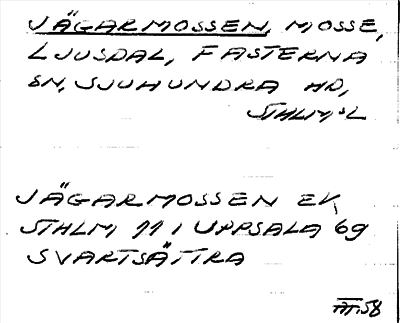 JÄGARMOSSEN, MOSSE,
LJUSDAL, FASTERNA
SN, SJUHUNDRA HD,
STHLM,S L
JÄGARMOSSEN EK,
STHLM 11 I UPPSALA 69
SVARTSÄTTRA
58